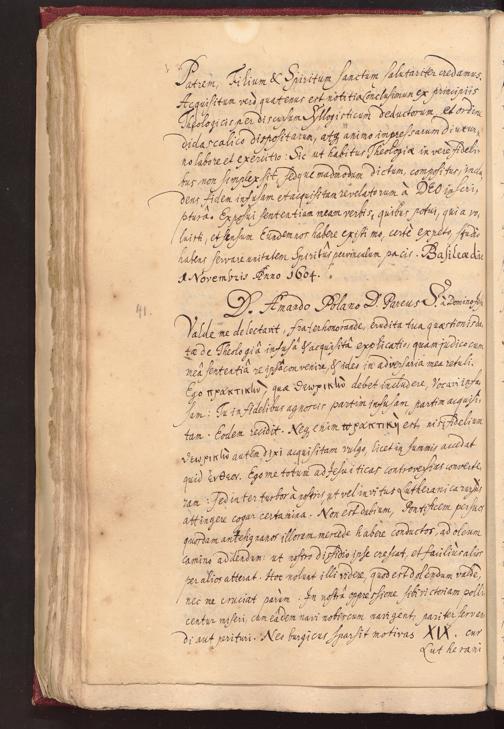 Patrem, Filium & Spiritum sanctum salutariter credamus.
Acquisitum verò quatenus est notitia conclusionum ex principiis
Theologicis per discursum Syllogisticum deductorum, et ordine
didascalico dispositarum, atq animo impressarum diuturno
labore et exercitio: Sic ut habitus Theologiæ in verè fideli
bus non simplex sit, sed quemadmodum dictum, compositus,
dens fidem infusam et acquisitam revelatorum à DEO in scri,
pturâ. Exposui sententiam meam verbis, quibus potui, quia vo,
luisti, et sensum Eundem nos habere existimo, certè expeto, studio
habens servare unitatem Spiritus per vinculum pacis. Basileæ die
1 Novembris Anno 1604.
41.
D. Amando Polano D. Pareus S. à Domino
Valde me delectavit, frater honorande, erudita tua quæstionis de
de Theologiâ infusâ & acquisitâ explicatio, quam judico cum
meâ sententiâ re ipsâ convenire, & ideo in adversaria mea retuli.
Ego πρακτικὴν, quæ θεωρικὴν debet includere, vocavi infu
sam: Tu in fidelibus agnoscis partim infusam partim acquisi
tam. Eodem recidit. Neq enim πρακτικὴ est, nisi fidelium
θεωρικὴν autem dixi acquisitam vulgo, licet in summis accedat
quid ἔνθεον. Ego me totum ad Jesuiticas controversias converte
ram: sed inter turbor à nostris, ut vel invitus Lutherana rursus
attingere cogar certamina. Non est dubium, Pontificem per suos
quosdam antesignanos illorum mercede habere conductos, ad oleum
camino addendum: ut nostro dissidio ipse crescat, et facilius alios
per alios atterat. Hoc nolunt illi videre, quod est dolendum valde,
nec me cruciat parum. In nostrâ oppressione sibi victoriam polli
centur miseri, cum eâdem navi nobiscum navigent, pariter servan
di aut perituri. Neoburgicus sparsit motivas XIX. cur
Lutherani